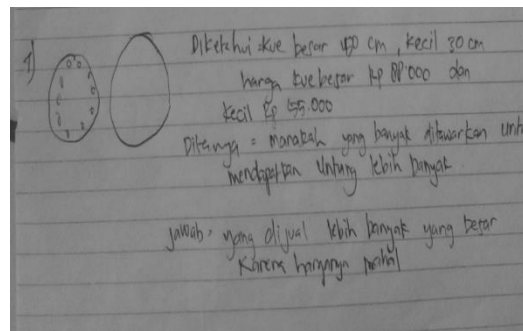 1)
Diketahui : kue besar 40 cm, kecil 30 cm
harga kue besar Rp 88.000 dan
kecil Rp 55.000
Ditanya = manakah yang banyak ditawarkan unt
mendapatkan untung lebih banyak.
Jawab = yang dijual lebih banyak yang besar
karena harganya mahal